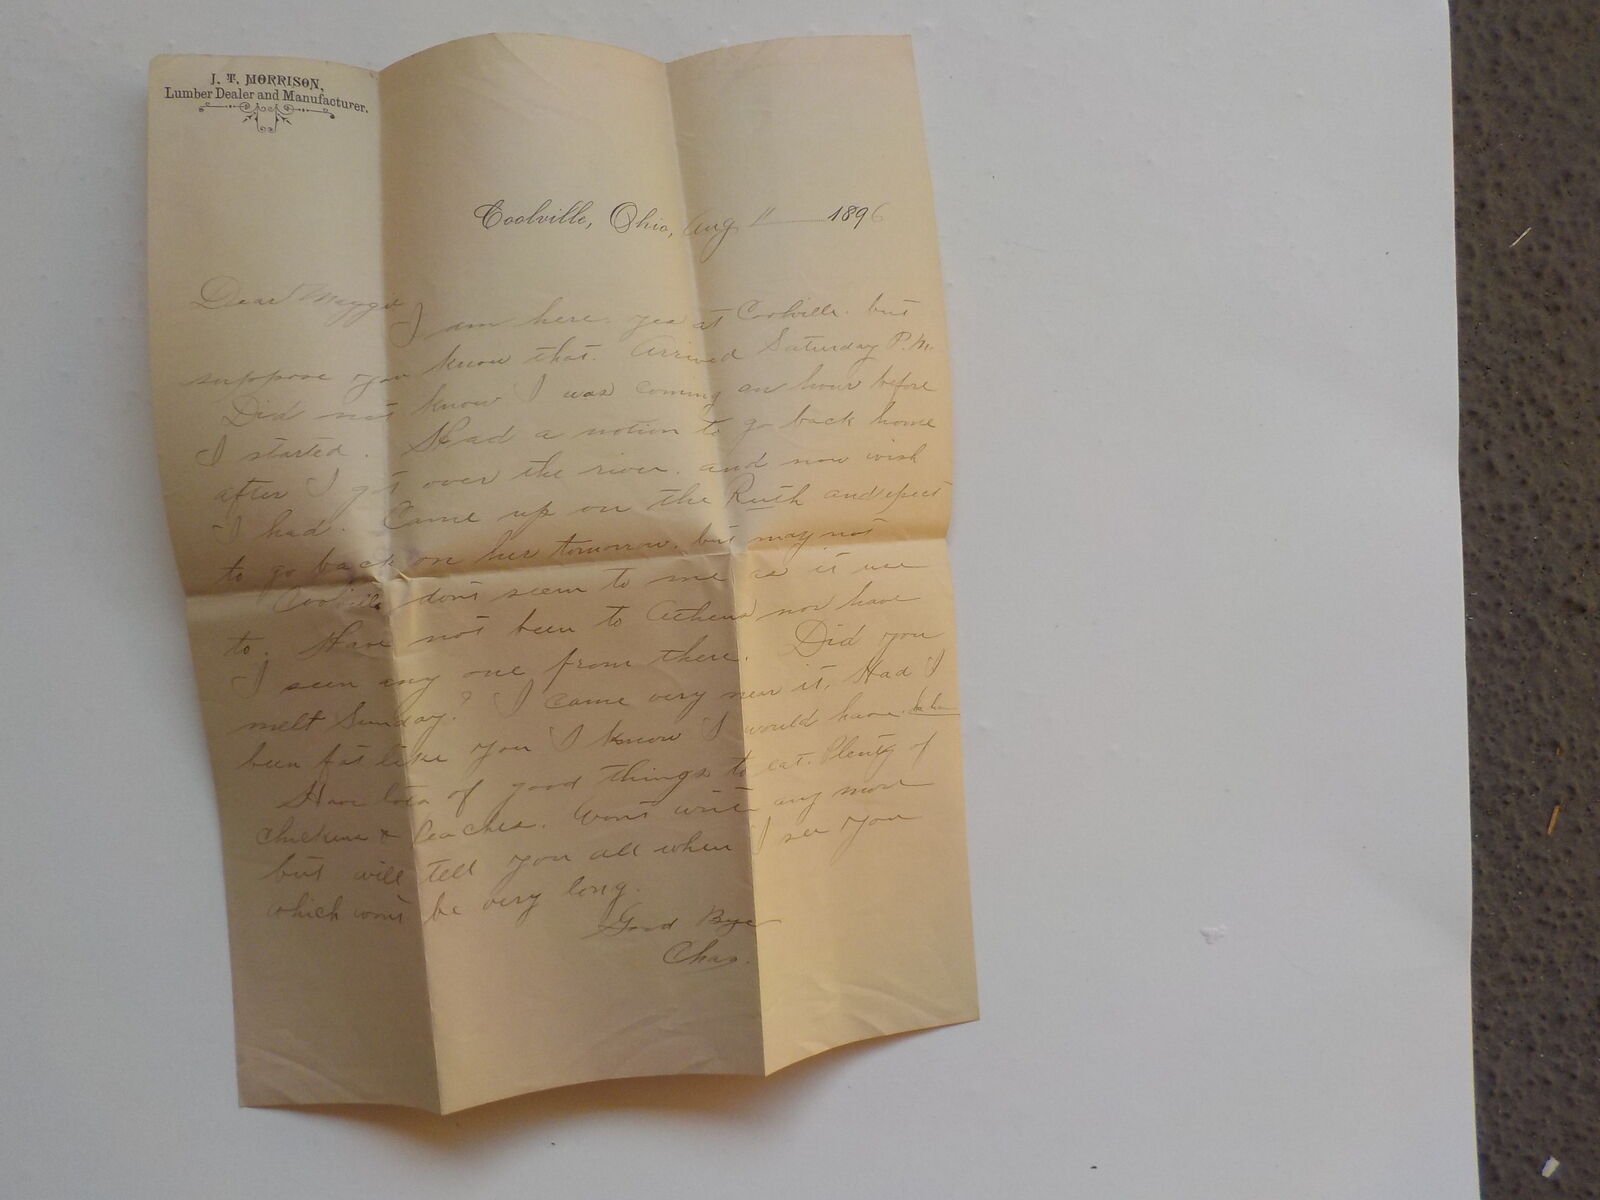 J. T. MORRISON,
Lumber Dealer and Manufacturer.
Coolville, Ohio, Aug 11 1896
Dear Maggie
I am here. yes at Coolville. but
suppose you know that. Arrived Saturday P.M.
Did not know I was coming an hour before
I started. Had a notion to go back home
after I got over the river. and now wish
I had. Came up on the Ruth and expect
to go back on her tomorrow. but may not
Coolville dont seem to me as it use
to. Have not been to Athens nor have
I seen any one from there. Did you
melt Sunday? I came very near it. Had I
been fat like you I know I would have.
Have lots of good things to eat. Plenty of
chickens & Peaches. Wont write any more
but will tell you all when I see you
which wont be very long.
Good Bye
Chas.